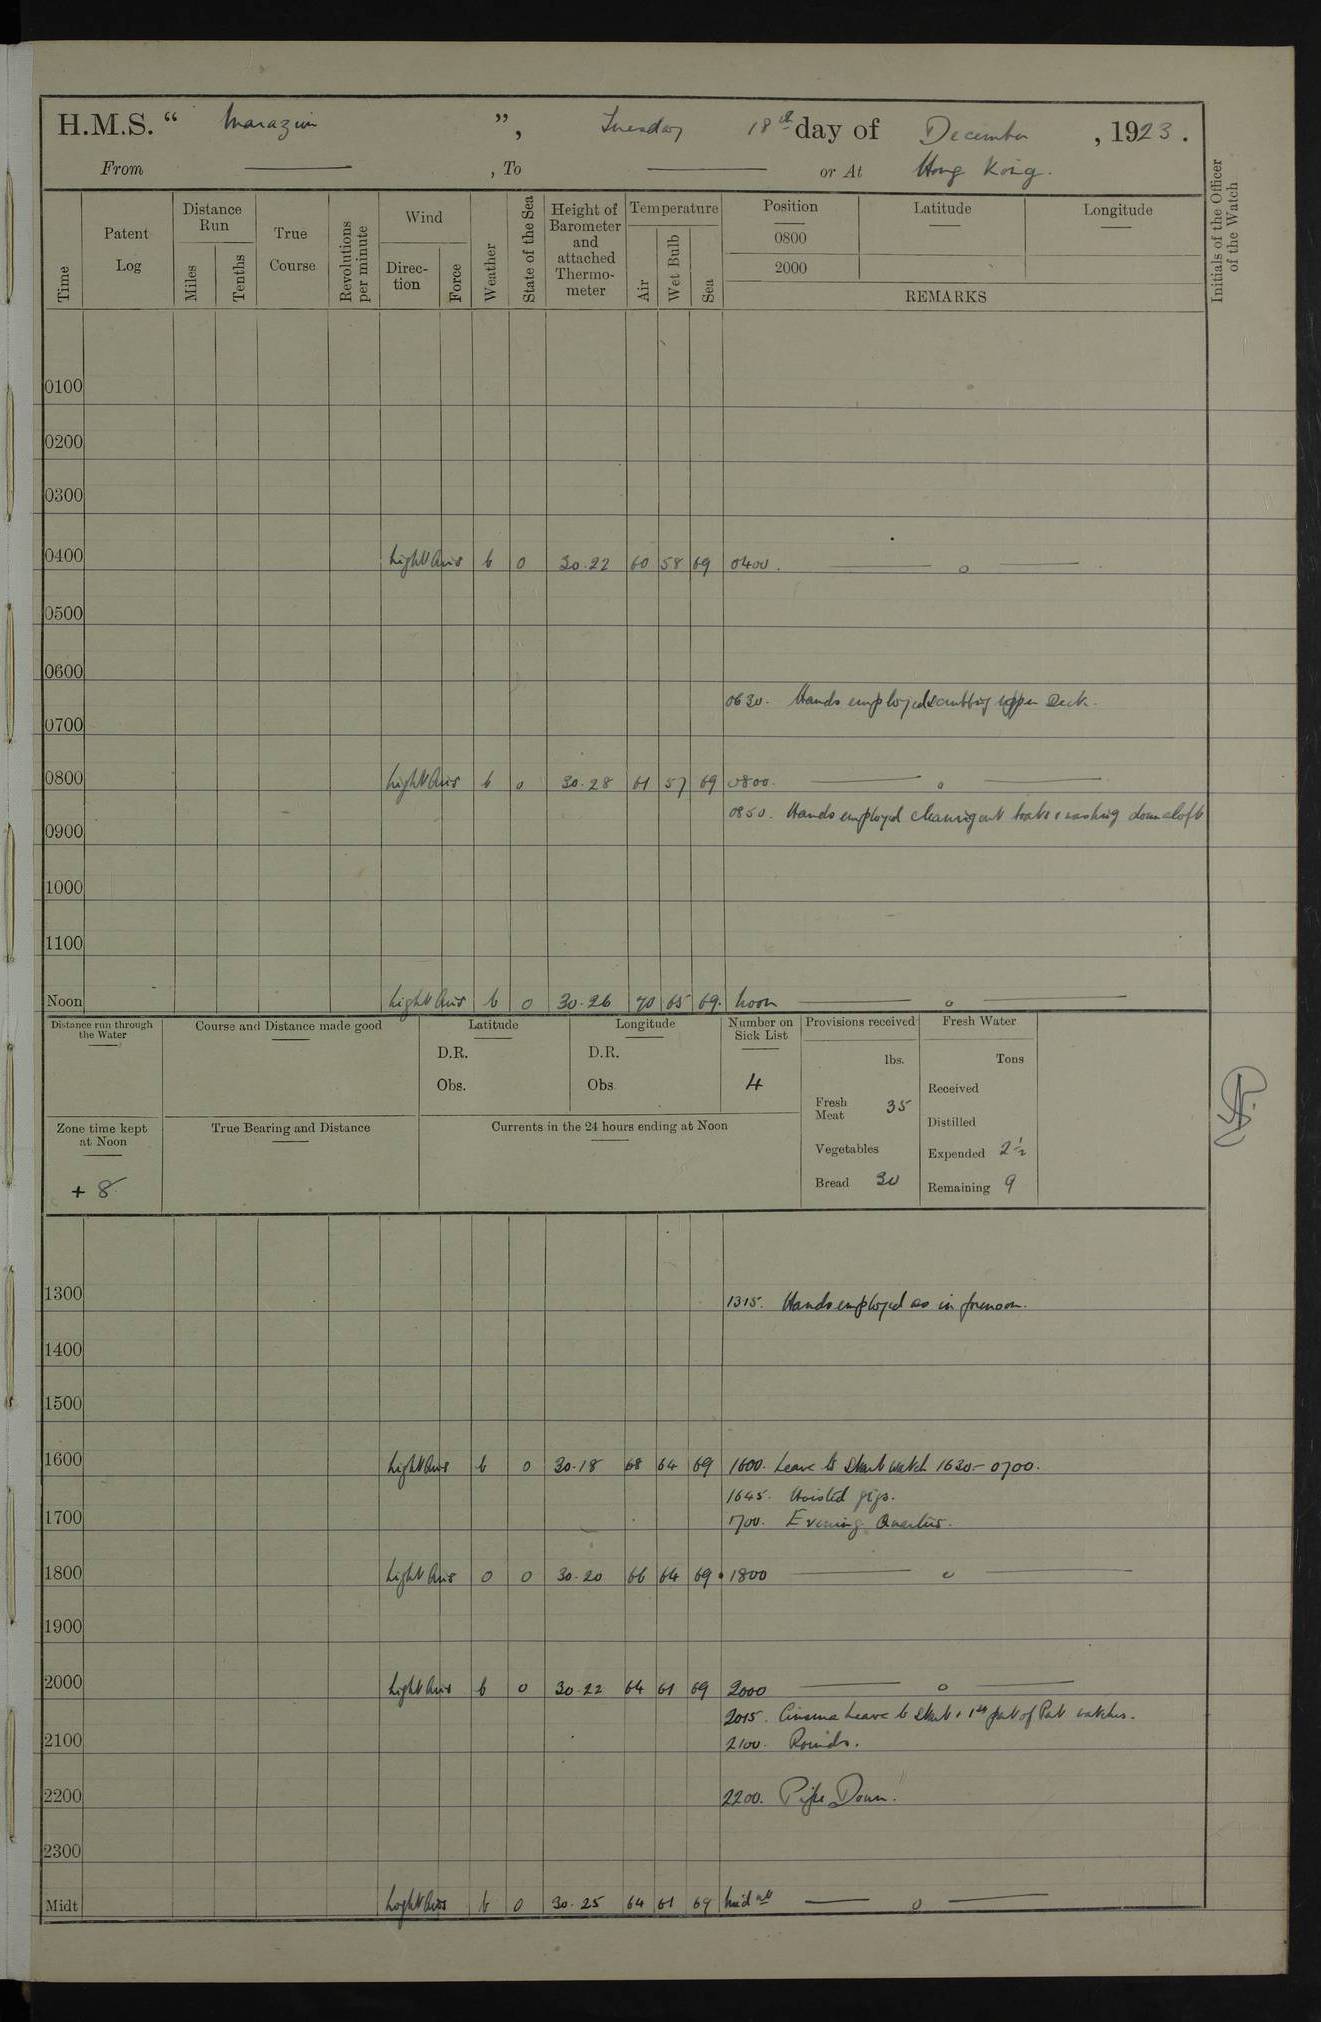 H.M.S. “ Marazion ”, Tuesday 18th day of December, 1923.
From ——— , To ——— or At Hong Kong.
Time
Patent Log
Distance Run
Miles
Tenths
True Course
Revolutions per minute
Wind
Direction
Force
Weather
State of the Sea
Height of Barometer and attached Thermometer
Temperature
Air
Wet Bulb
Sea
Position
0800
2000
Latitude
Longitude
REMARKS
Initials of the Officer of the Watch
0100
0200
0300
0400 Light Airs b 0 30.22 60 58 69 0400. ——— o ———
0500
0600
0630. Hands employed scrubbing upper deck.
0700
0800 Light Airs b 0 30.28 61 57 69 0800. ——— o ———
0850. Hands employed cleaning out boats & washing down aloft
0900
1000
1100
Noon Light Airs b 0 30.26 70 65 69. Noon ——— o ———
Distance run through the Water
Course and Distance made good
Latitude
D.R.
Obs.
Longitude
D.R.
Obs
Number on Sick List
4
Provisions received
lbs.
Fresh Meat 35
Vegetables
Bread 30
Fresh Water
Tons
Received
Distilled
Expended 2½
Remaining 9
Zone time kept at Noon
+ 8
True Bearing and Distance
Currents in the 24 hours ending at Noon
1300
1315. Hands employed as in forenoon.
1400
1500
1600 Light Airs b 0 30.18 68 64 69 1600. Leave to Starb watch 1630 - 0700.
1645. Hoisted gigs.
1700 1700. Evening Quarters.
1800 Light Airs 0 0 30.20 66 64 69 1800 ——— o ———
1900
2000 Light Airs b 0 30.22 64 61 69 2000 ——— o ———
2015. Cinema Leave to Starb & 1st part of Port watches.
2100 2100. Rounds.
2200 2200. Pipe Down.
2300
Midt Light Airs b 0 30.25 64 61 69 Midnt ——— o ———